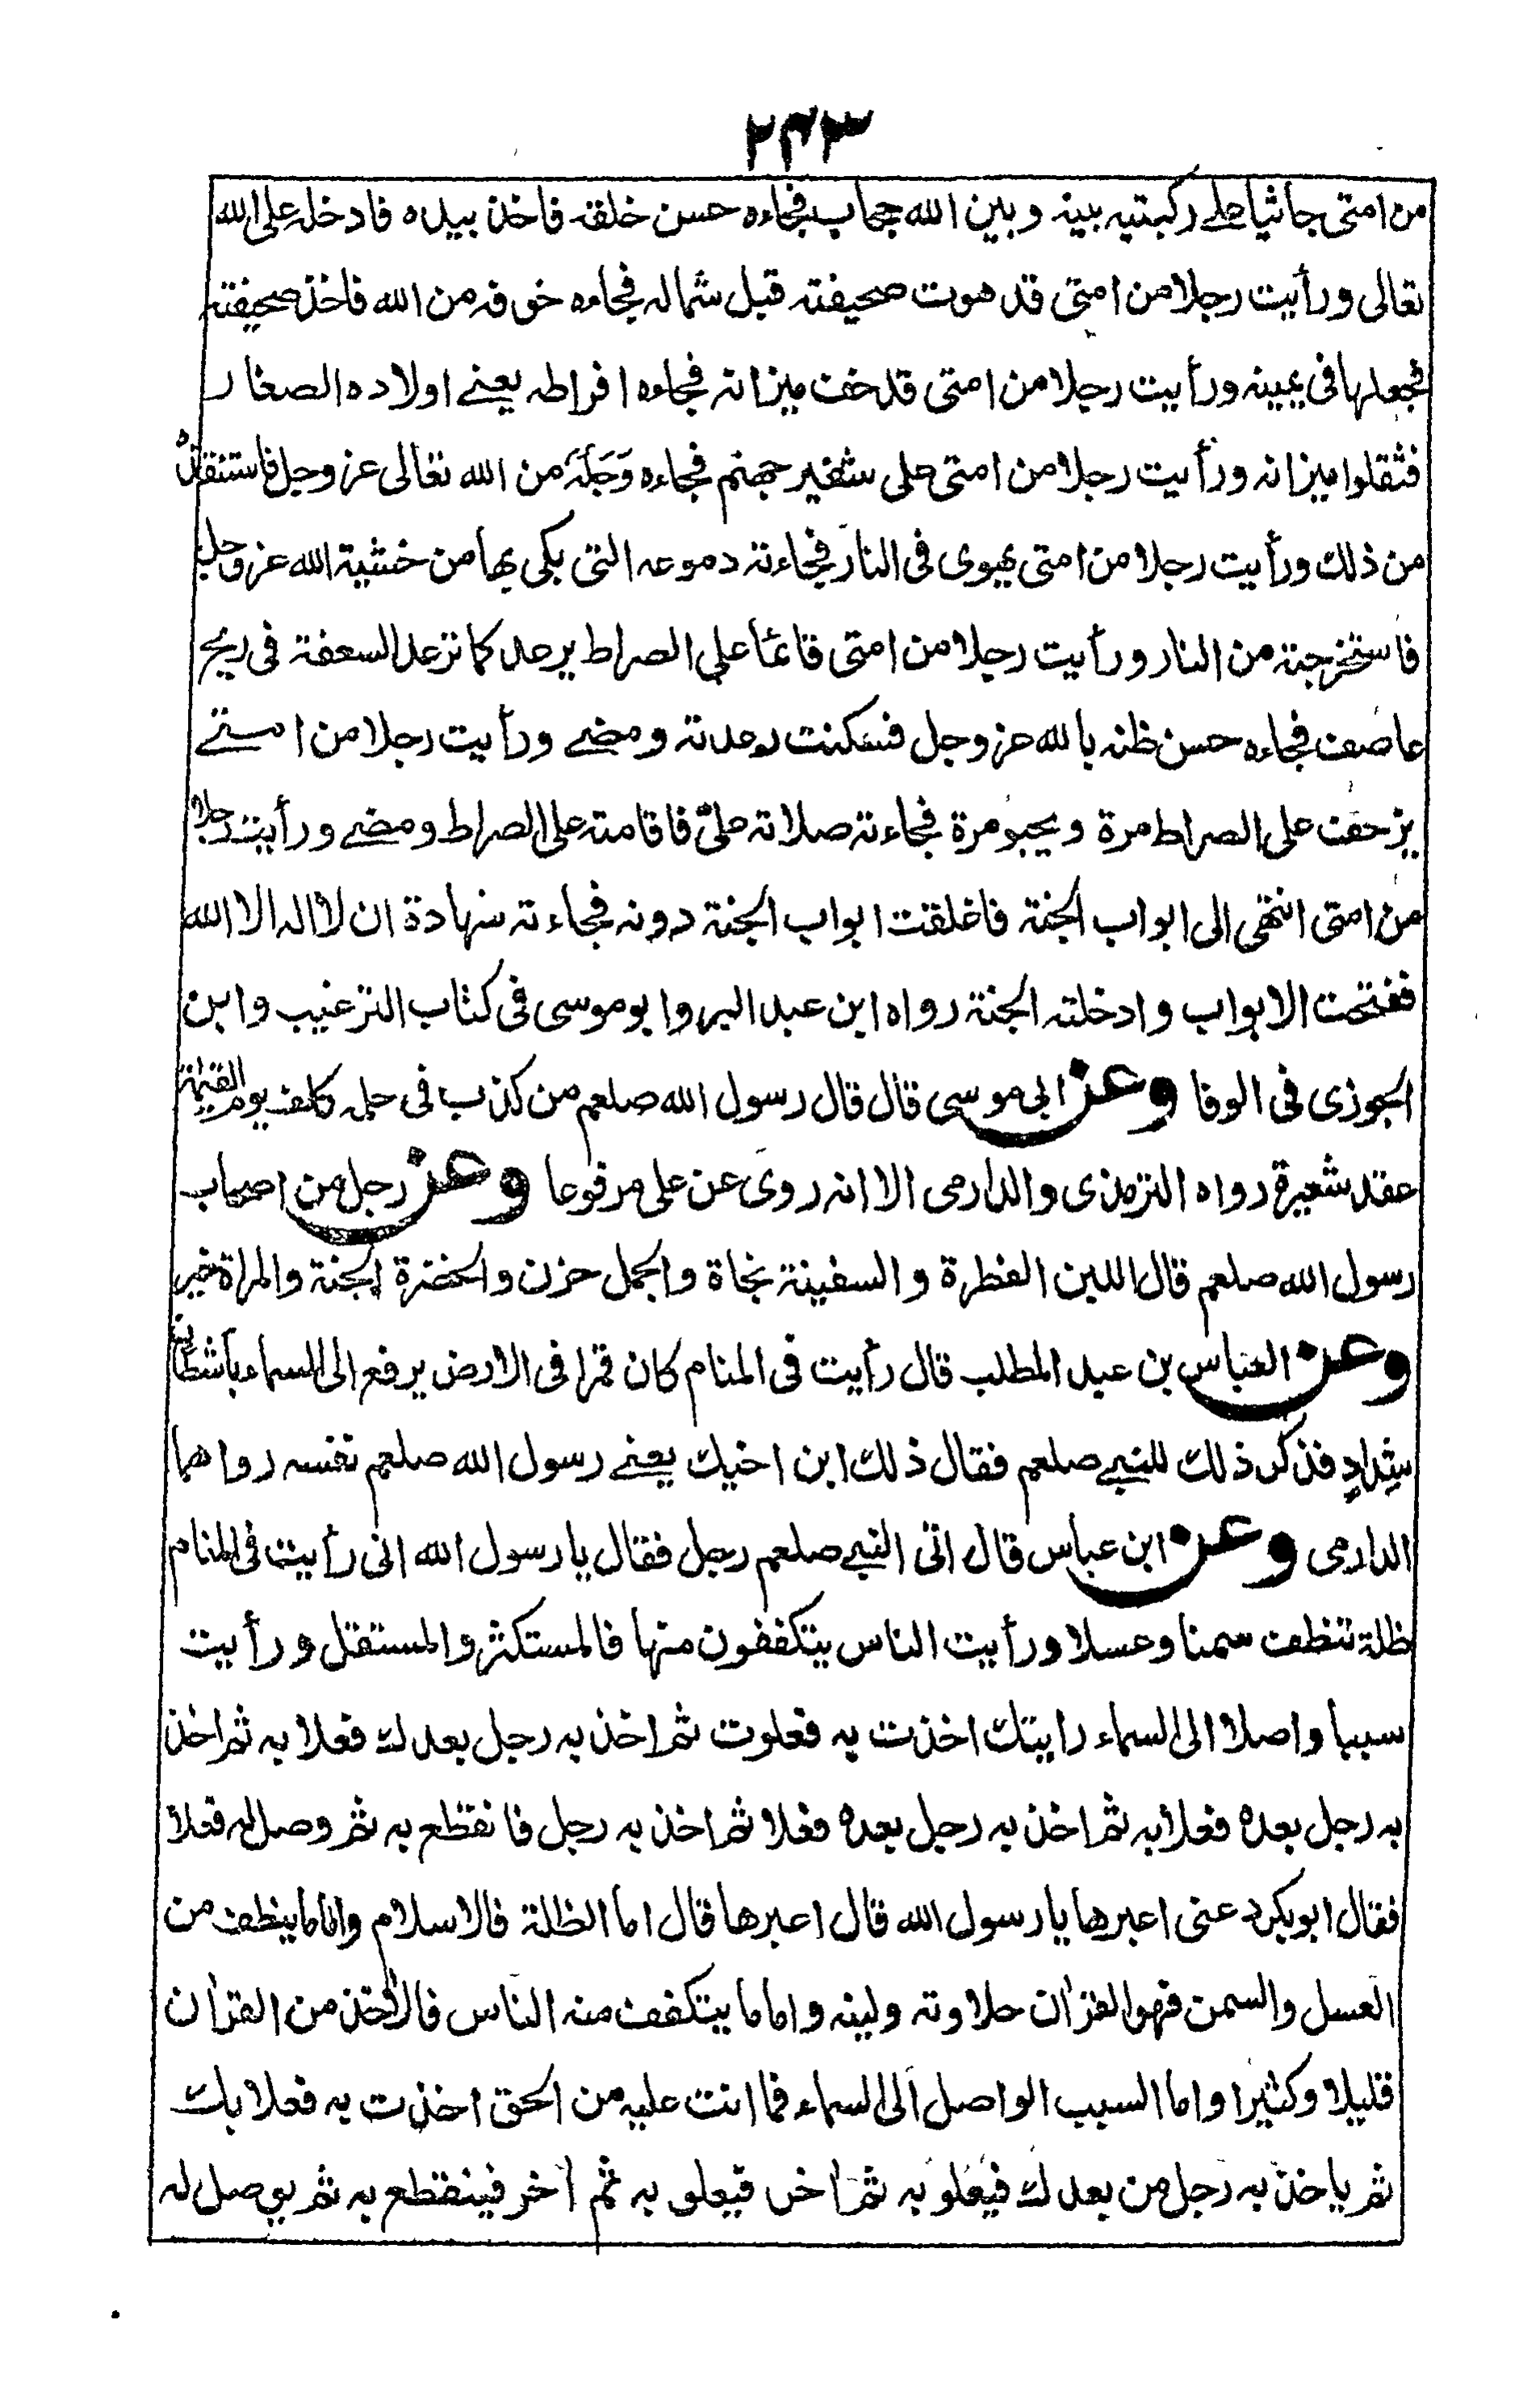 ٢٤٣
من امتى جاثيا على ركبتيه بينه وبين الله حجاب فجاءه حسن خلقه فاخذ بيده فادخله على الله
تعالى ورأيت رجلا من امتى قد هوت صحيفته قبل شماله فجاءه خوفه من الله فاخذ صحيفته
فجعلها فى يمينه ورأيت رجلا من امتى قد خف ميزانه فجاءه افراطه يعنے اولاده الصغار
فثقلوا ميزانه ورأيت رجلا من امتى على شفير جهنم فجاءه وَجَلُهٗ من الله تعالى عز وجل فاستنقذهٗ
من ذلك ورأيت رجلا من امتى يهوى فى النار فجاءته دموعه التى بكى بها من خشية الله عز وجل
فاستخرجته من النار ورأيت رجلا من امتى قائما على الصراط يرعد كما ترعد السعفة فى ريح
عاصف فجاءه حسن ظنه بالله عز وجل فسكنت رعدته ومضے ورأيت رجلا من امتے
يزحف على الصراط مرة ويحبو مرة فجاءته صلاته علىّ فاقامته على الصراط ومضے ورأيت رجلا
من امتى انتهى الى ابواب الجنة فاغلقت ابواب الجنة دونه فجاءته شهادة ان لا اله الا الله
ففتحت الابواب وادخلته الجنة رواه ابن عبد البر وابو موسى فى كتاب الترغيب وابن
الجوزى فى الوفا وعن ابى موسى قال قال رسول الله صلعم من كذب فى حلمه كلف يوم القيٰمة
عقد شعيرة رواه الترمذى والدارمى الا انه روى عن على مرفوعا وعن رجل من اصحاب
رسول الله صلعم قال اللبن الفطرة والسفينة نجاة والجمل حزن والخضرة الجنة والمراة خير
وعن العباس بن عبد المطلب قال رأيت فى المنام كان قمرا فى الارض يرفع الى السماء باشطان
شِدادٍ فذكر ذلك للنبے صلعم فقال ذلك ابن اخيك يعنے رسول الله صلعم نفسه رواهما
الدارمى وعن ابن عباس قال اتى النبے صلعم رجل فقال يا رسول الله انى رأيت فى المنام
ظلة تنطف سمنا وعسلا ورأيت الناس يتكففون منها فالمستكثر والمستقل ورأيت
سببا واصلا الى السماء رايتك اخذت به فعلوت ثم اخذ به رجل بعدك فعلا به ثم اخذ
به رجل بعده فعلا به ثم اخذ به رجل بعده فعلا ثم اخذ به رجل فانقطع به ثم وصل له فعلا
فقال ابو بكر دعنى اعبرها يا رسول الله قال اعبرها قال اما الظلة فالاسلام واما ما ينطف من
العسل والسمن فهو القرٰان حلاوته ولينه واما ما يتكفف منه الناس فالاٰخذ من القرٰان
قليلا وكثيرا واما السبب الواصل الى السماء فما انت عليه من الحق اخذت به فعلا بك
ثم ياخذ به رجل من بعدك فيعلو به ثم اٰخر فيعلو به ثم اٰخر فينقطع به ثم يوصل له